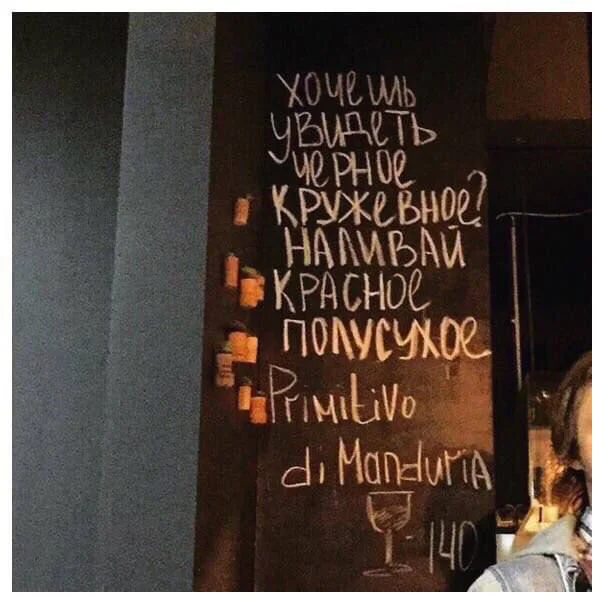 хочешь
увидеть
черное
кружевное?
наливай
красное
полусухое
Primitivo
di Manduria
- 140